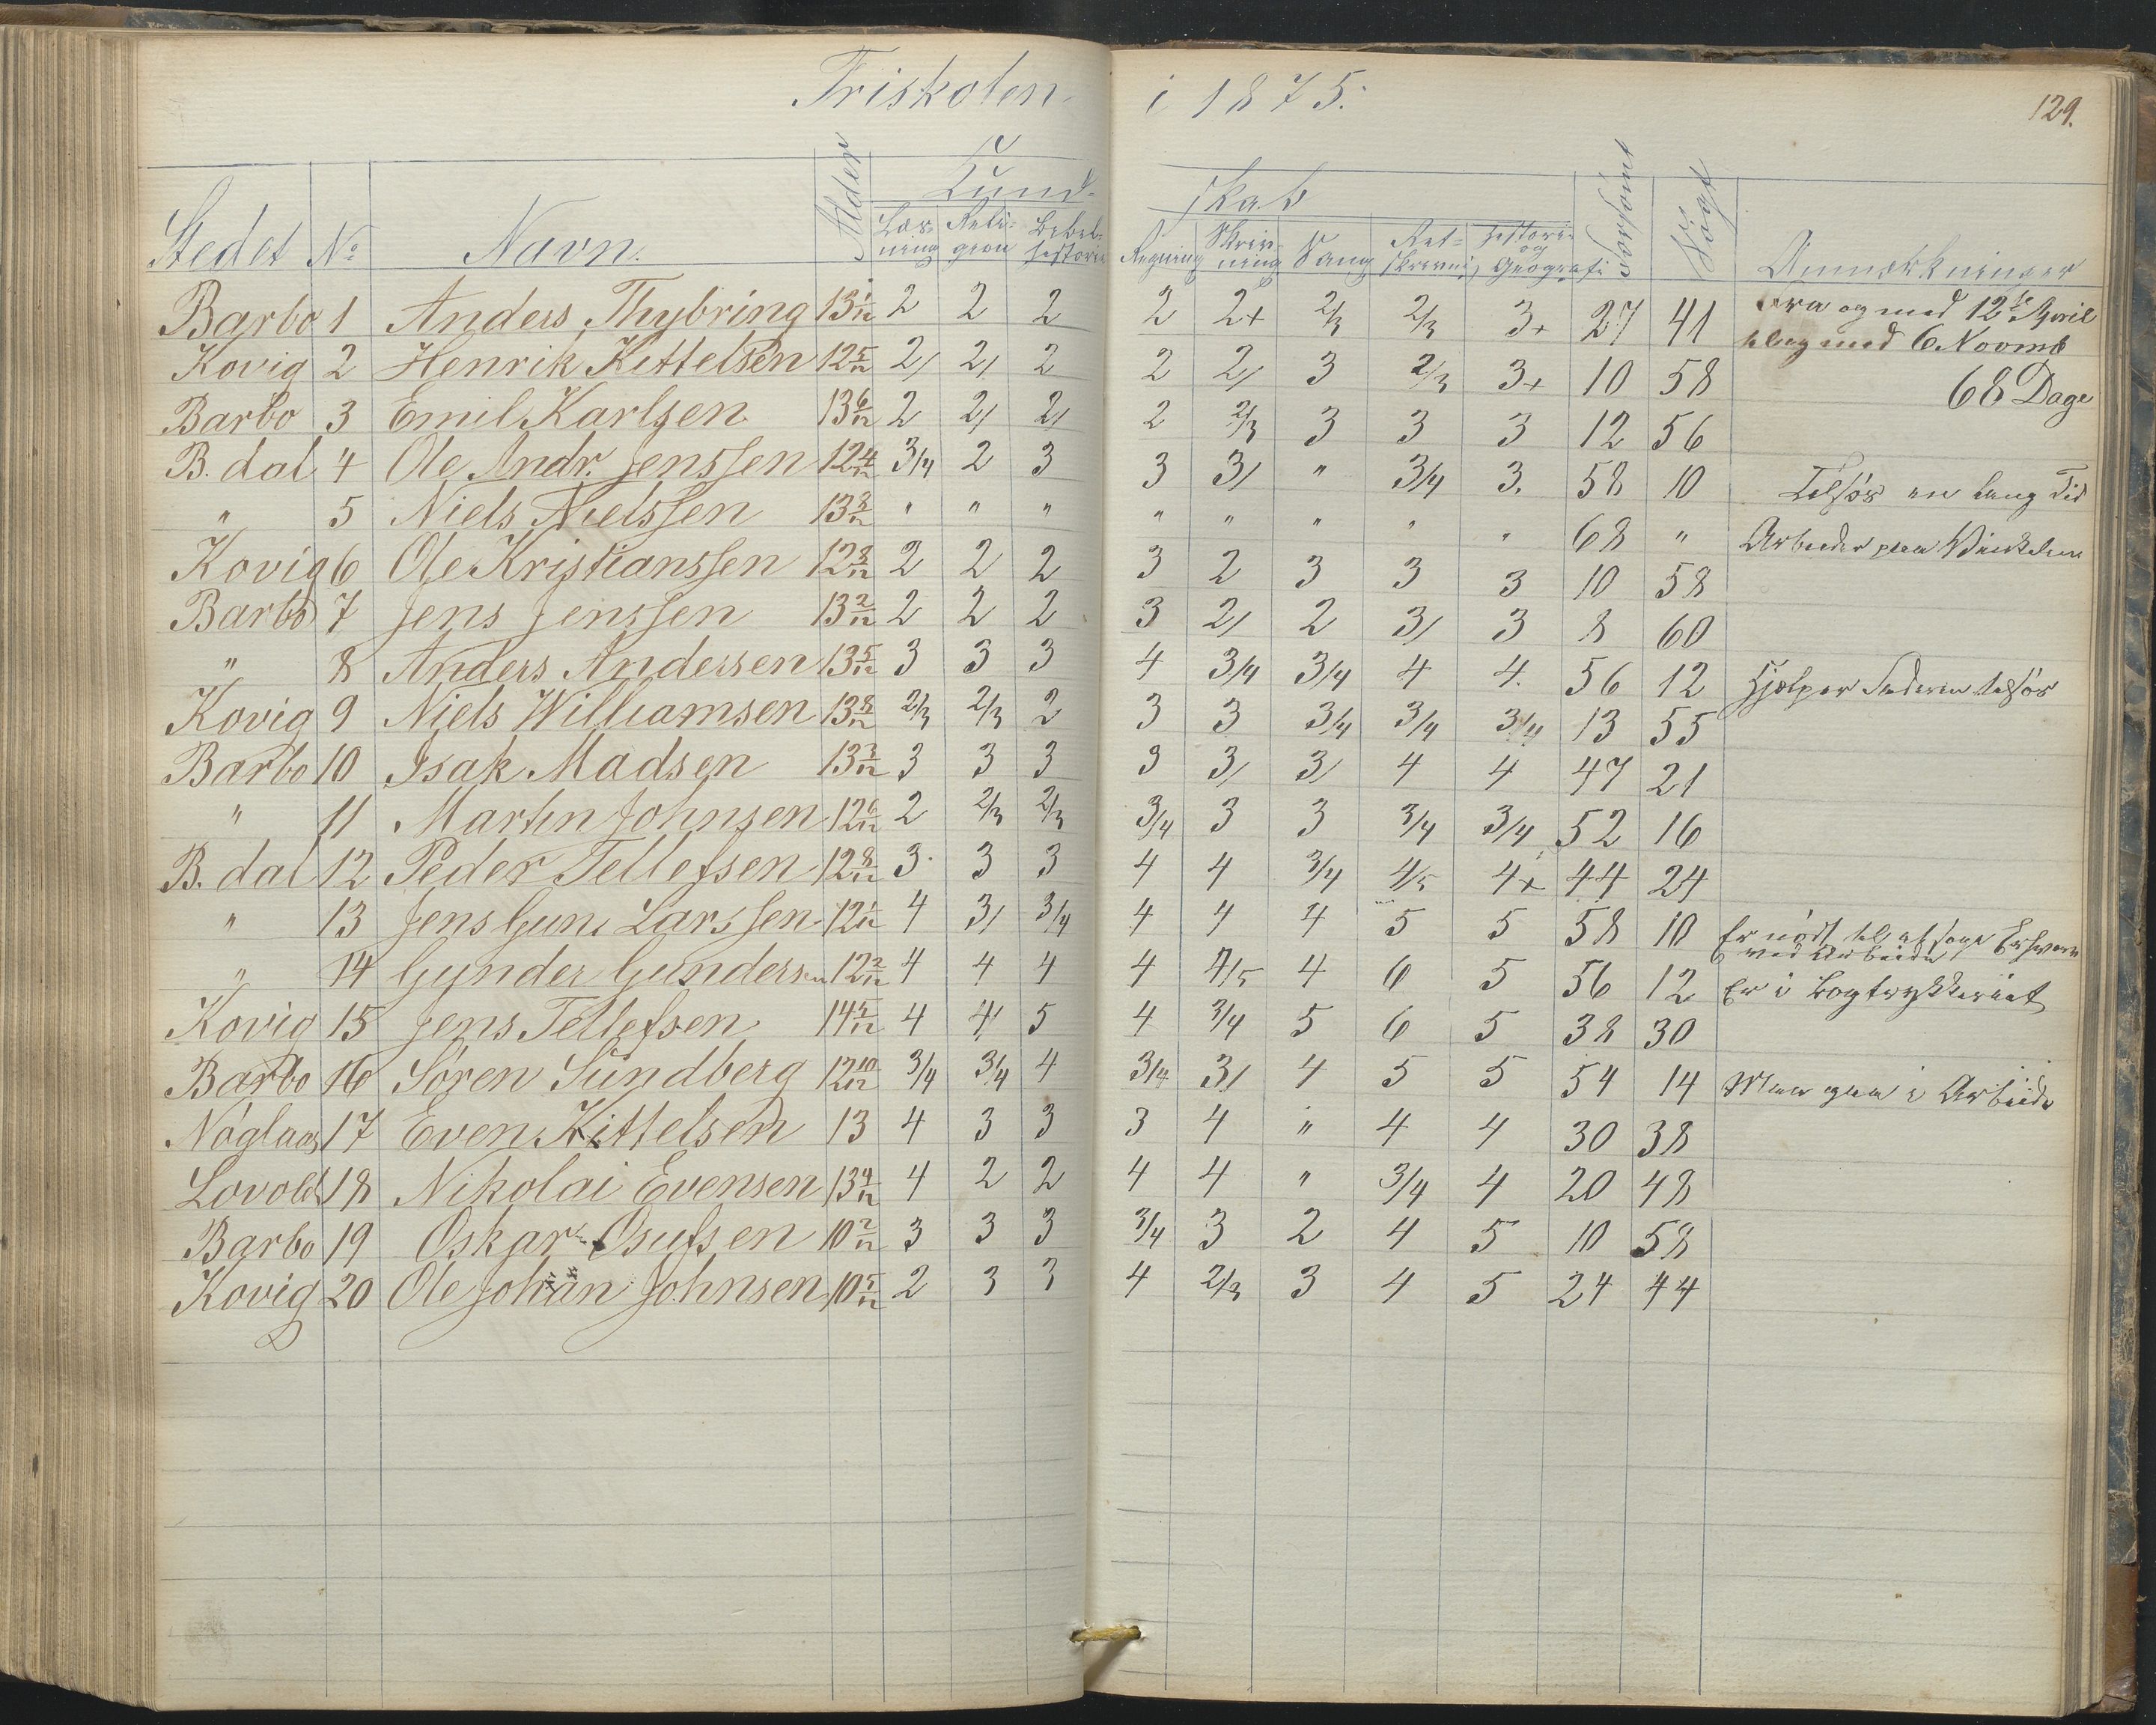 Friskolen i 1875.
129.
Stedet No Navn. Alder Kund- skab Forsømt Søgt Anmærkninger
Læs- ning Reli- gion Bibel- historie Regning Skriv- ning Sang Ret- skrivning Historie og Geografi
Barbo 1 Anders Thybring 13 1/12 2 2 2 2 2+ 2/3 2/3 3+ 27 41 Fra og med 12te April
til og med 6 Novmb
Kovig 2 Henrik Kittelsen 12 5/12 2/ 2/ 2 2 2/ 3 2/3 3+ 10 58 68 Dage
Barbo 3 Emil Karlsen 13 6/12 2 2/ 2/ 2 2/3 3 3 3 12 56
B. dal 4 Ole Andr. Jenssen 12 4/12 3/4 2 3 3 3/ " 3/4 3. 58 10 Tilsjøs en lang Tid
" 5 Niels Nielssen 13 3/12 " " " " " " " " 68 " Arbeider paa
Kovig 6 Ole Kristianssen 12 8/12 2 2 2 3 2 3 3 3 10 58
Barbo 7 Jens Jenssen 13 2/12 2 2 2 3 2/ 2 3/ 3 8 60
" 8 Anders Andersen 13 5/12 3 3 3 4 3/4 3/4 4 4. 56 12 Hjælper Faderen tilsjøs
Kovig 9 Niels Williamsen 13 8/12 2/3 2/3 2 3 3 3/4 3/4 3/4 13 55
Barbo 10 Isak Madsen 13 3/12 3 3 3 3 3/ 3/ 4 4 47 21
" 11 Martin Johnsen 12 6/12 2 2/3 2/3 3/4 3 3 3/4 3/4 52 16
B. dal 12 Peder Tellefsen 12 8/12 3 3 3 4 4 3/4 4/5 4+ 44 24
" 13 Jens Gun. Larssen 12 1/12 4 3/ 3/4 4 4 4 5 5 58 10 Er nødt til at søge Erhverv
ved Arbeide
" 14 Gunder Gundersen 12 2/12 4 4 4 4 4/5 4 6 5 56 12 Er i Bogtrykkeriet
Kovig 15 Jens Tellefsen 14 5/12 4 4 5 4 3/4 5 6 5 38 30
Barbo 16 Sören Sundberg 12 10/12 3/4 3/4 4 3/4 3/ 4 5 5 54 14 Maa gaa i Arbeide
Nöglaas 17 Even Kittelsen 13 4 3 3 3 4 " 4 4 30 38
Lovold 18 Nikolai Evensen 13 4/12 4 2 2 4 4 " 3/4 4 20 48
Barbo 19 Oskar Osufsen 10 2/12 3 3 3 3/4 3 2 4 5 10 58
Kovig 20 Ole Johan Johnsen 10 5/12 2 3 3 4 2/3 3 4 5 24 44